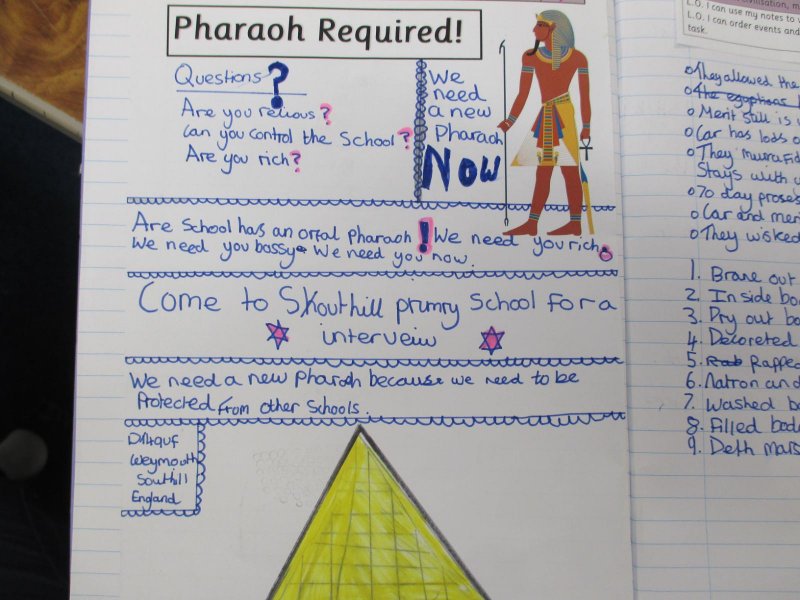 Pharaoh Required!
Questions?
Are you relious?
Can you control the School?
Are you rich?
We
need
a new
Pharaoh
Now
Are School has an orfal pharaoh! We need you rich.
We need you bossy. We need you now.
Come to Skouthill primry School for a
interveiw
We need a new Pharaoh because we need to be
Protected from other Schools.
Weymouth
Southill
England
civilisation, m
L.O. I can use my notes to
L.O. I can order events and
task.
They allowed the
the egyptians
Merit still is
Car has lods o
They
Stays with
70 day proses
Car and mer
They wicked
1. Brane out
2. Inside bo
3. Dry out bo
4. Decoreted
5. Rab Rapped
6. Natron and
7. Washed bo
8. Filled bod
9. Deth mas